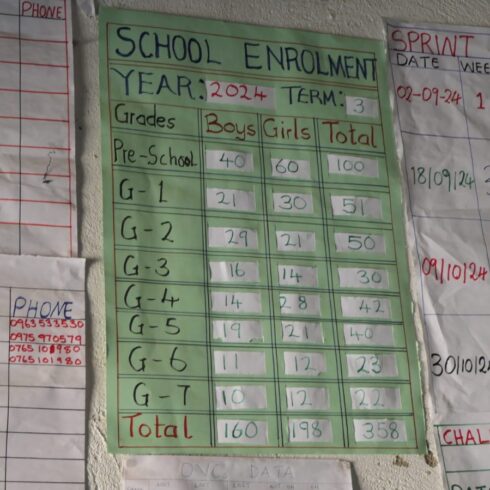 PHONE
PHONE
0963533530
0975970579
0765101980
0765101980
SCHOOL ENROLMENT
YEAR: 2024 TERM: 3
Grades Boys Girls Total
Pre-School 40 60 100
G-1 21 30 51
G-2 29 21 50
G-3 16 14 30
G-4 14 28 42
G-5 19 21 40
G-6 11 12 23
G-7 10 12 22
Total 160 198 358
OVC DATA
SPRINT
DATE WEE
02-09-24 1
18/09/24
09/10/24
30/10/2
CHAL
DAT